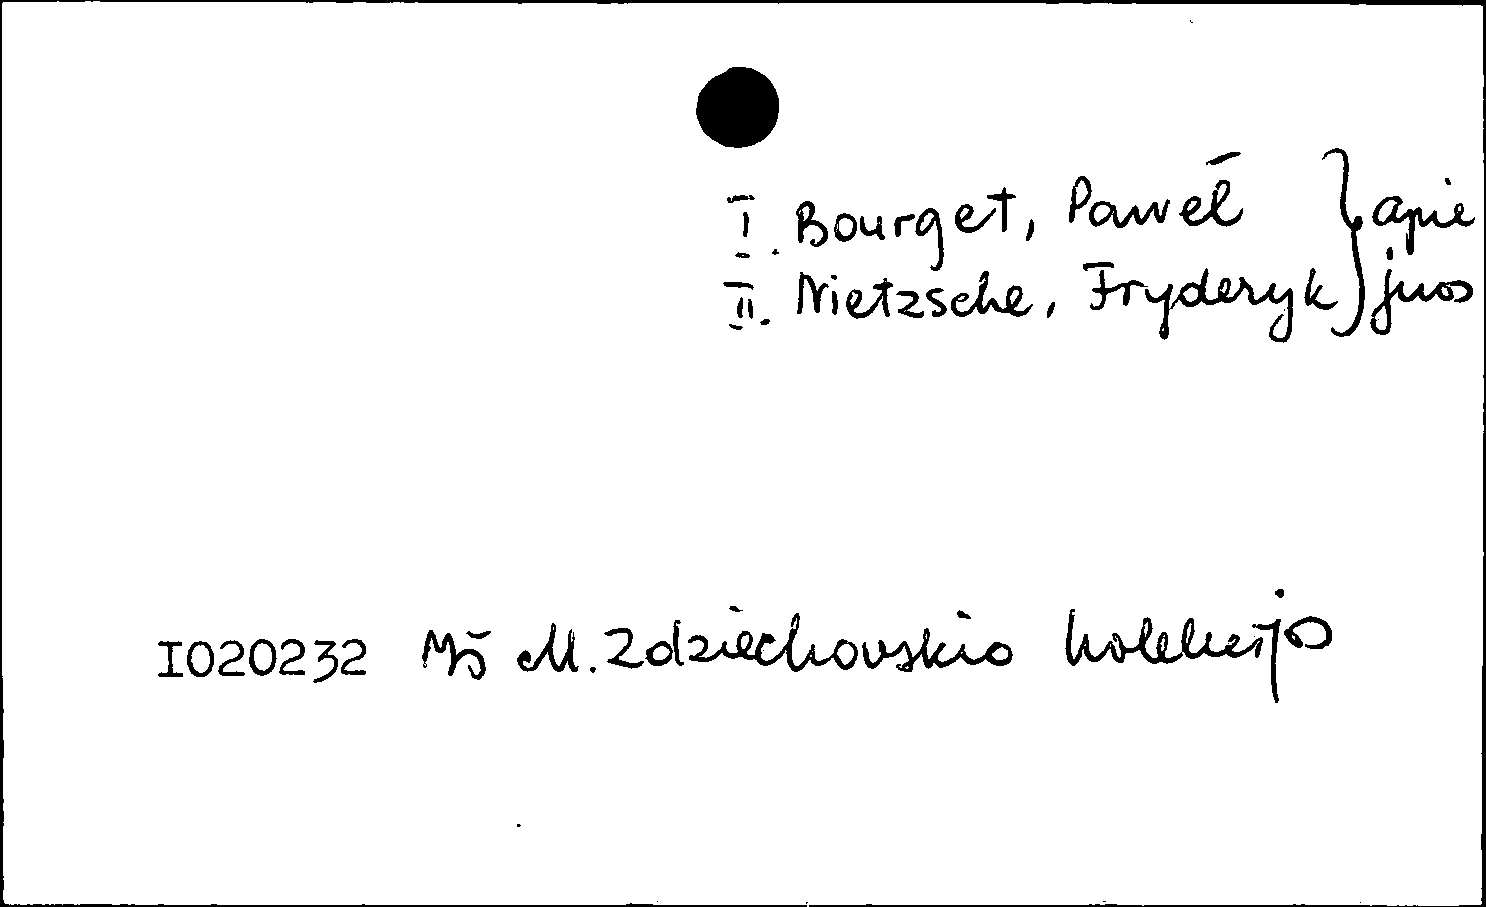 I. Bourget, Paweł } apie
II. Nietzsche, Fryderyk } juos
IO20232 Iš M. Zdziechovskio kolekcijos